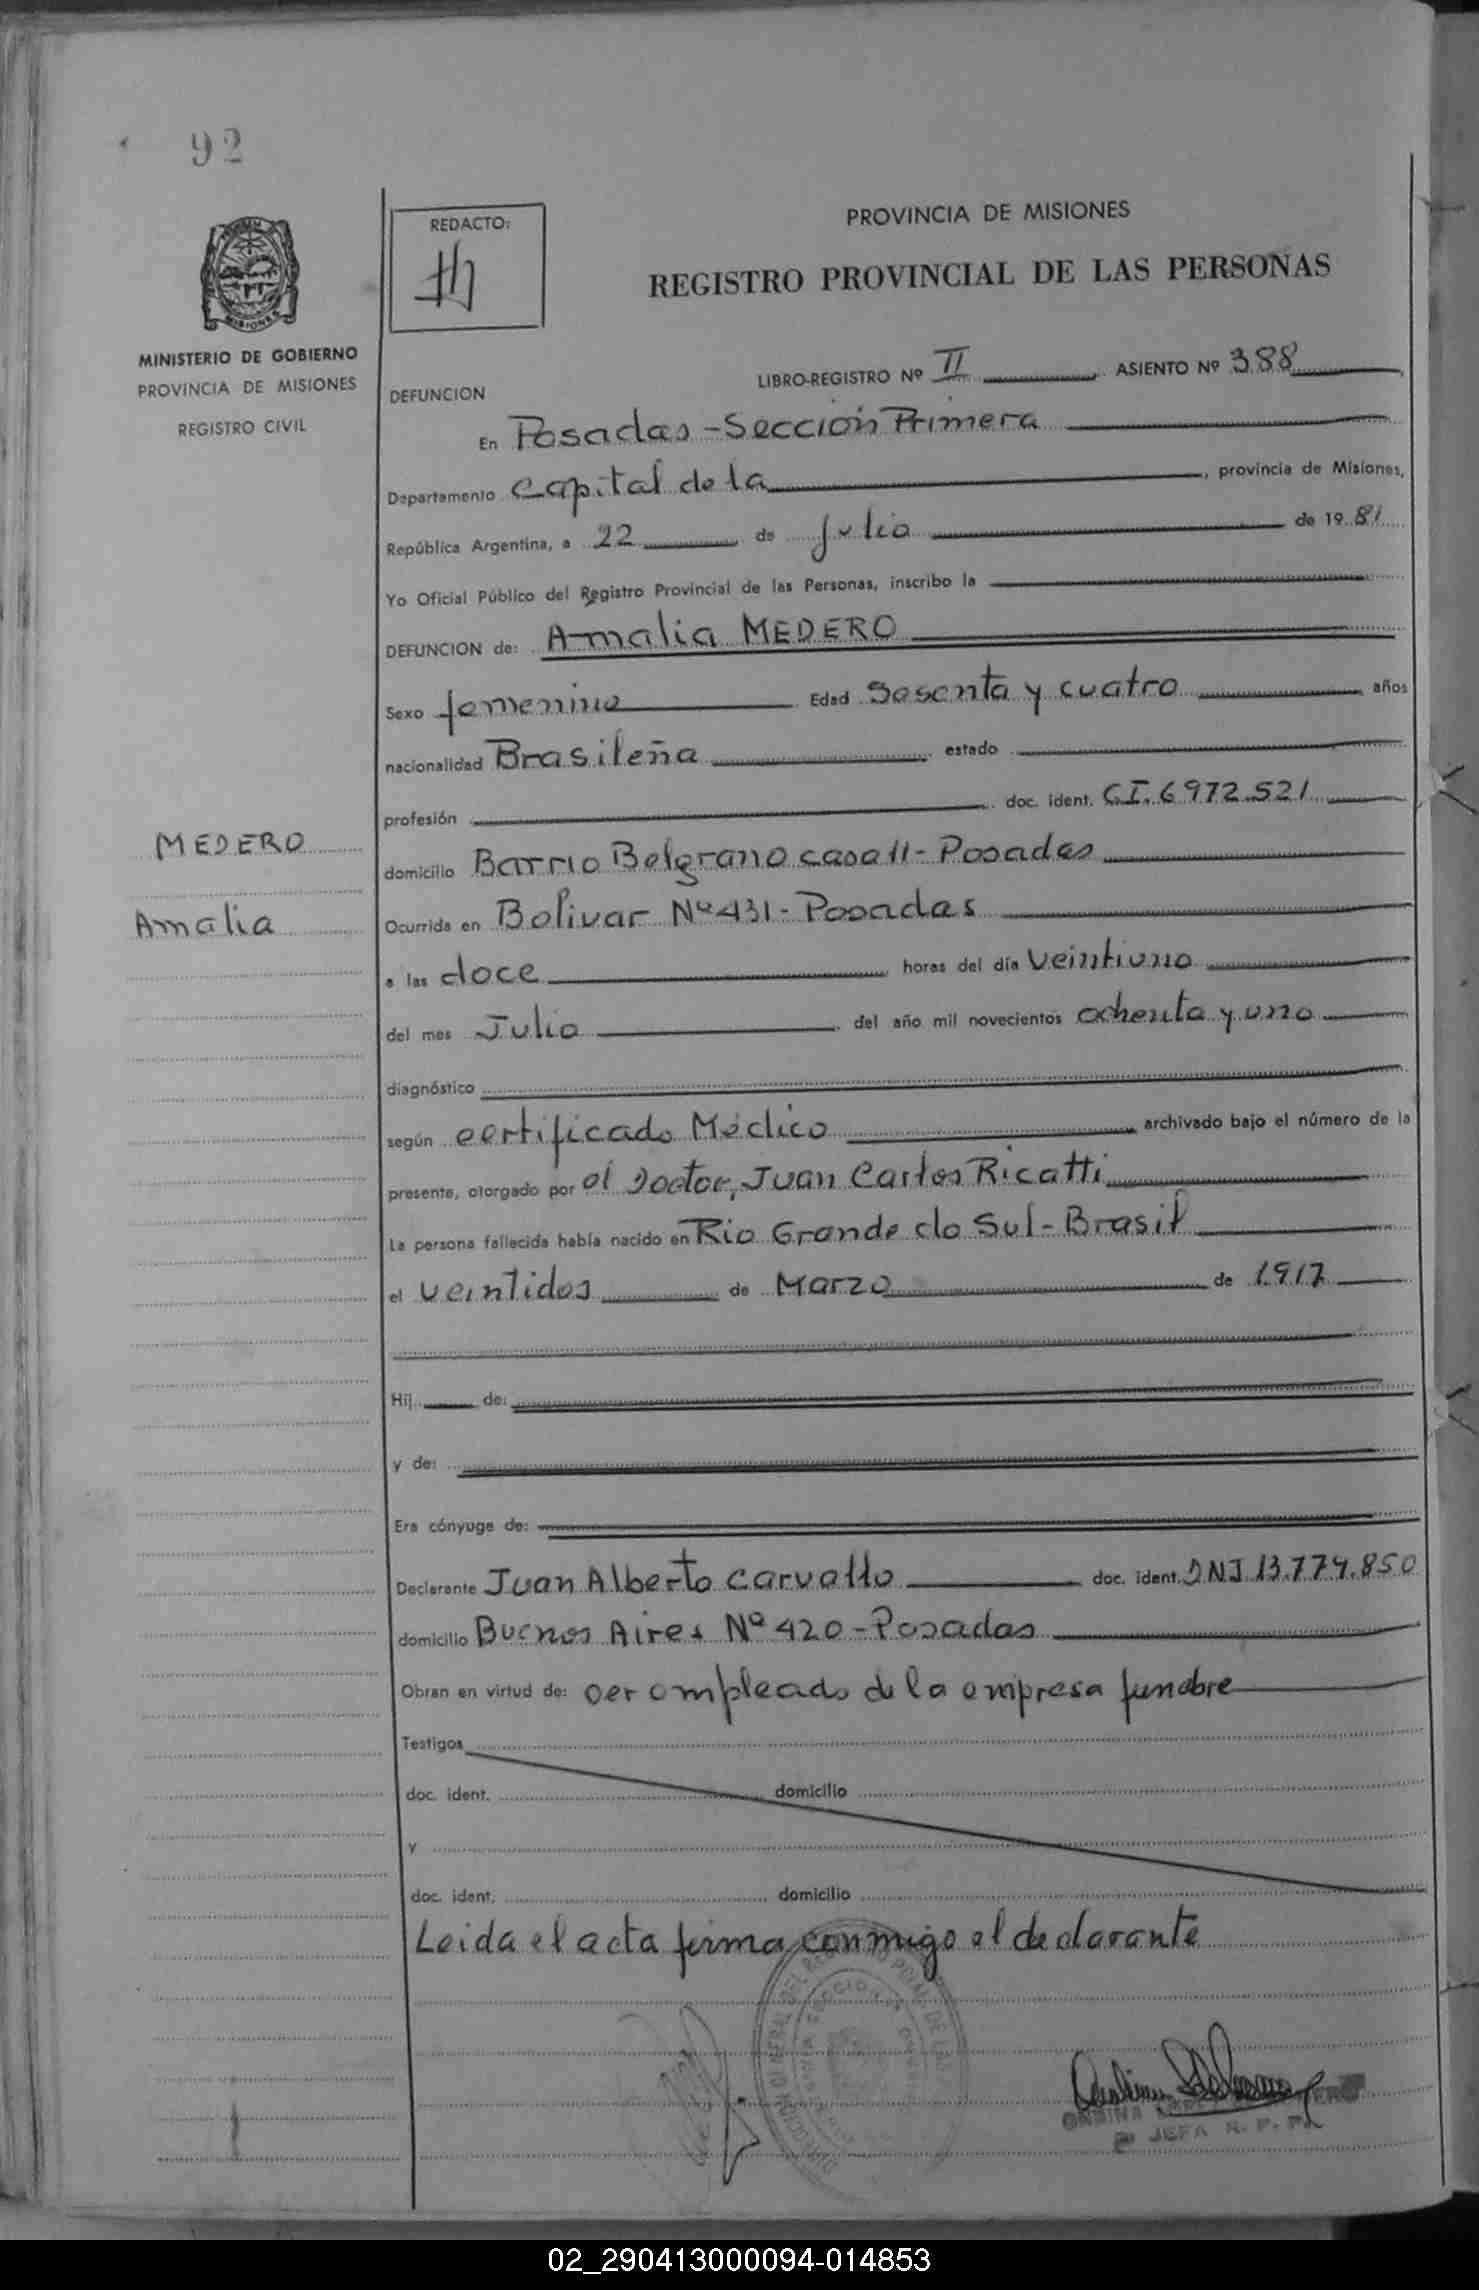 92
PROVINCIA DE MISIONES
REGISTRO PROVINCIAL DE LAS PERSONAS
REDACTO:
MISIONES
MINISTERIO DE GOBIERNO
PROVINCIA DE MISIONES
REGISTRO CIVIL
LIBRO-REGISTRO Nº II ASIENTO Nº 388
DEFUNCION
En Posadas - Sección Primera
Departamento Capital de la, provincia de Misiones,
República Argentina, a 22 de Julio de 1981
Yo Oficial Público del Registro Provincial de las Personas, inscribo la
DEFUNCION de: Amalia MEDERO
Sexo femenino Edad Sesenta y cuatro años
nacionalidad Brasileña estado
profesión doc. ident. C.I. 6972.521
MEDERO
domicilio Barrio Belgrano casa 11 - Posadas
Amalia
Ocurrida en Bolivar Nº 431 - Posadas
a las doce horas del día veintiuno
del mes Julio del año mil novecientos ochenta y uno
diagnóstico
según certificado Médico archivado bajo el número de la
presente, otorgado por el Doctor, Juan Carlos Ricatti
La persona fallecida había nacido en Rio Grande do Sul - Brasil
el veintidos de Marzo de 1917
Hij de:
y de:
Era cónyuge de:
Declarante Juan Alberto Carvallo doc. ident. DNI 13.779.850
domicilio Buenos Aires Nº 420 - Posadas
Obran en virtud de: ser empleado de la empresa funebre
Testigos
doc. ident. domicilio
y
doc. ident. domicilio
Leida el acta firma conmigo el declarante
JEFA R. P. P.
02_290413000094-014853